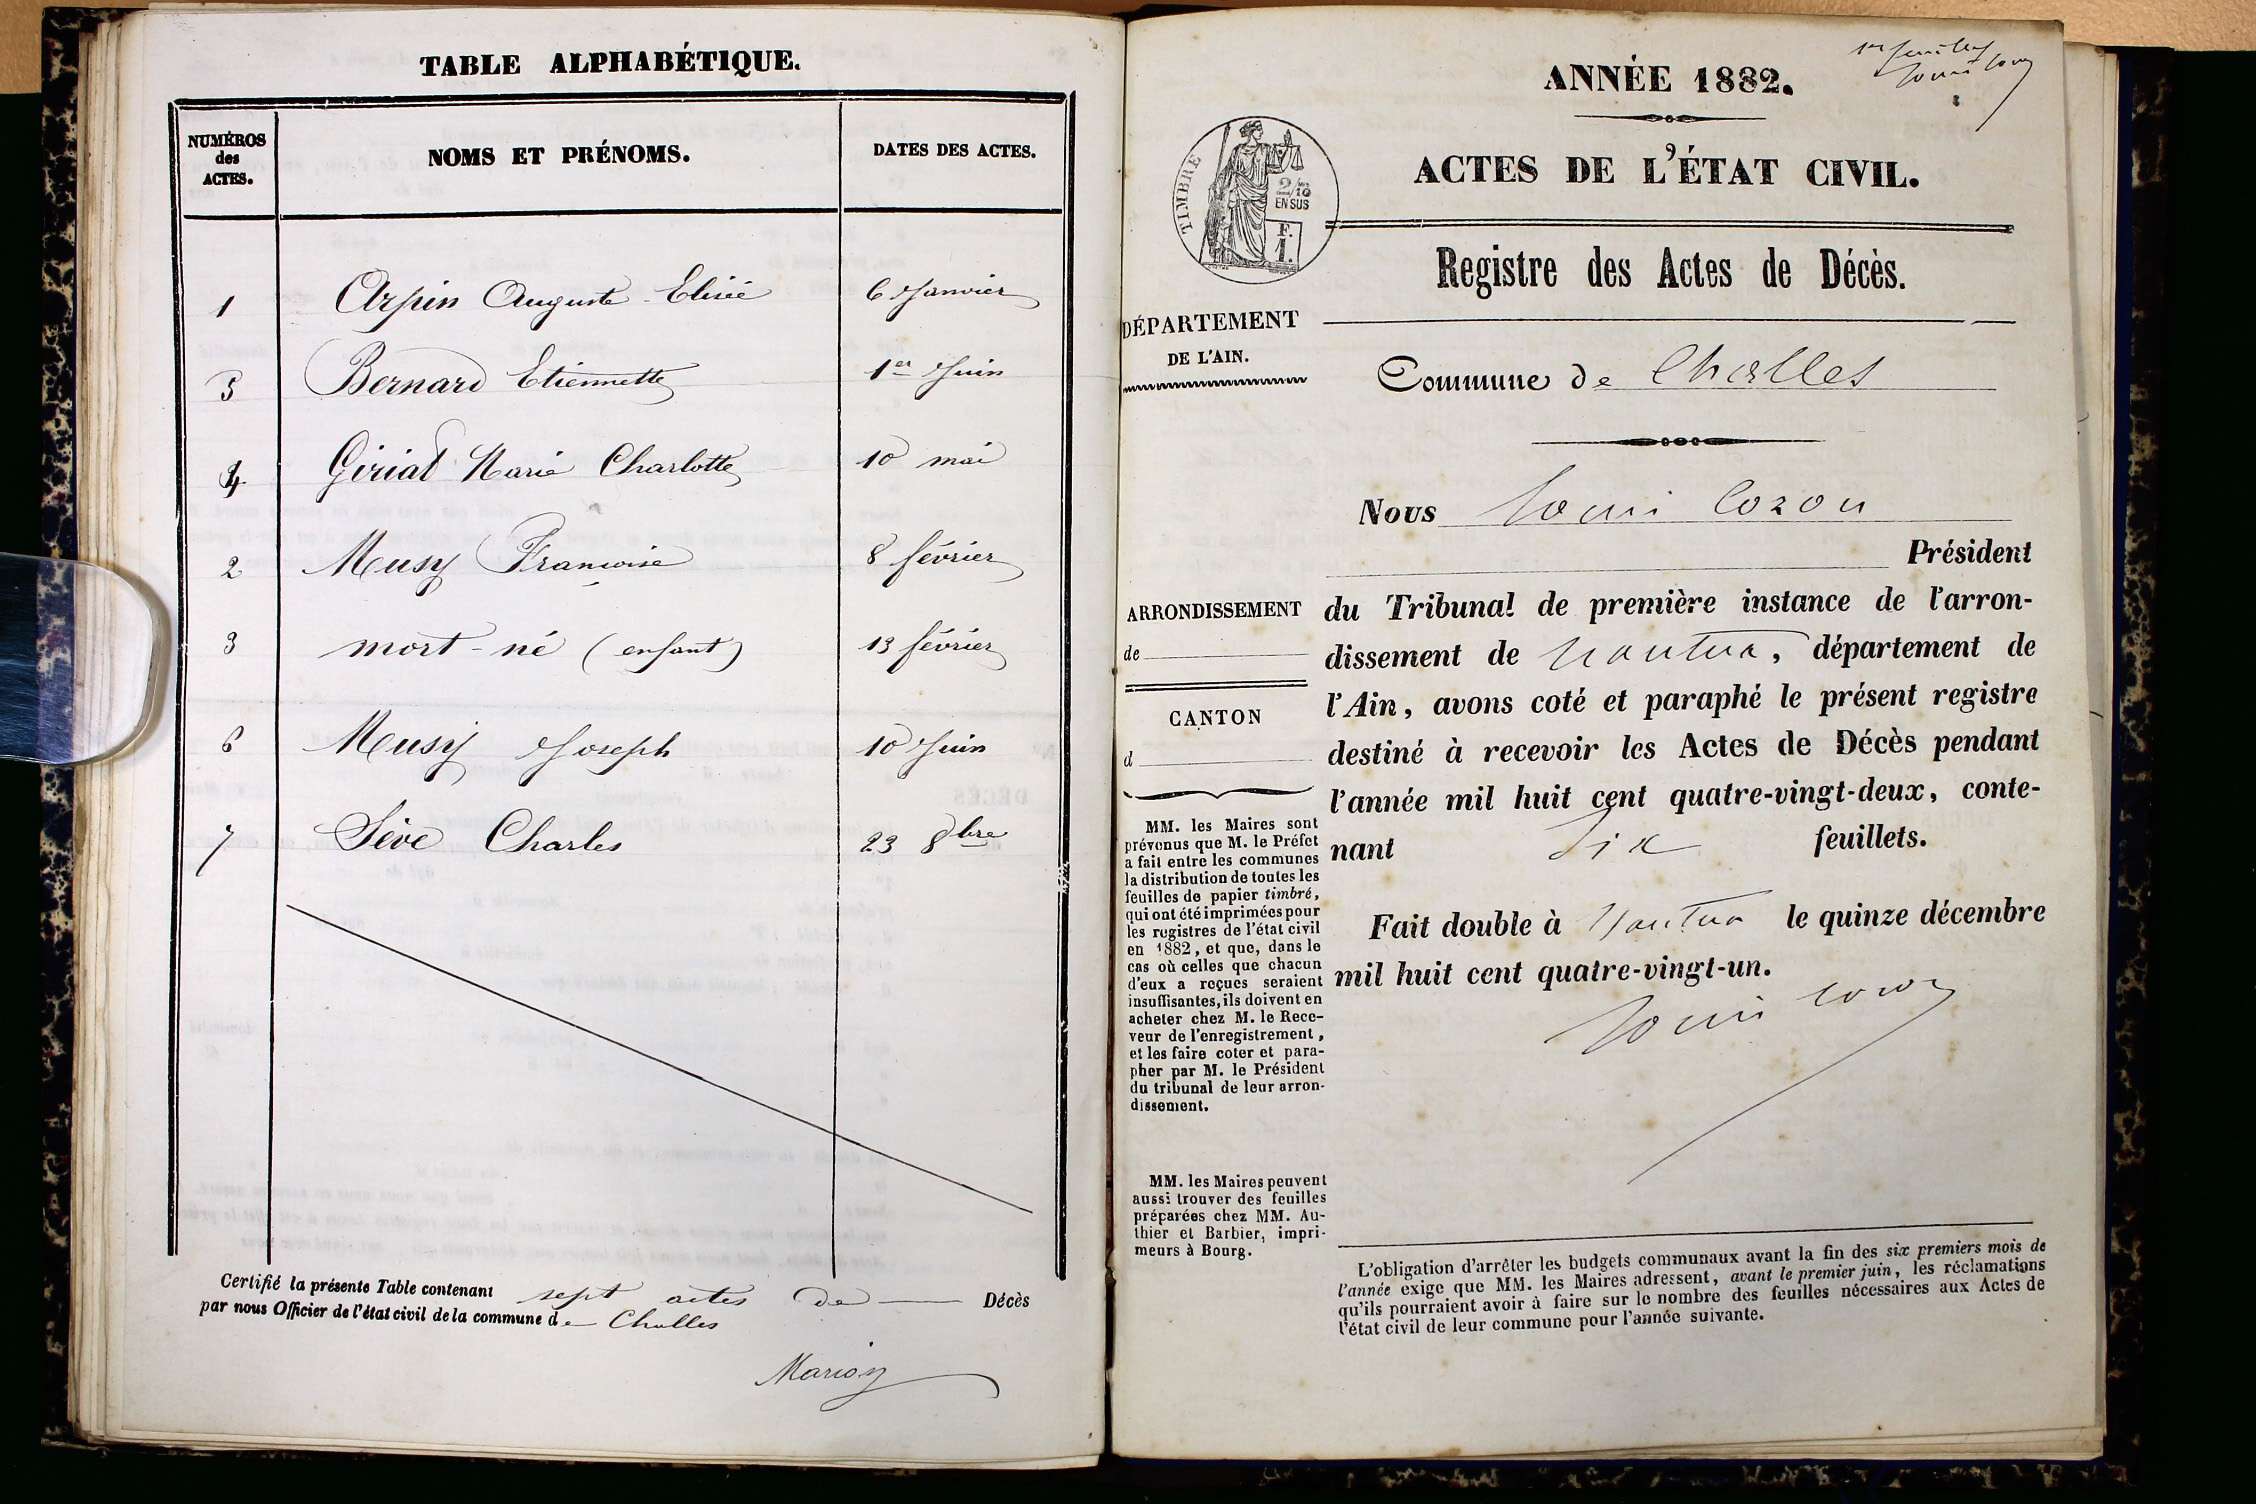 TABLE ALPHABÉTIQUE.
NUMÉROS
des
ACTES.
NOMS ET PRÉNOMS.
DATES DES ACTES.
1 Arpin Auguste-Elisée 6 Janvier
5 Bernard Etiennette 1er Juin
4 Giriat Marie Charlotte 10 mai
2 Musy Françoise 8 février
3 mort-né (enfant) 13 février
6 Musy Joseph 10 Juin
7 Sève Charles 23 8bre
Certifié la présente Table contenant sept actes de Décès
par nous Officier de l'état civil de la commune de Challes
Marion
ANNÉE 1882.
ACTES DE L'ÉTAT CIVIL.
TIMBRE
2/10
EN SUS
F.
1.
Registre des Actes de Décès.
DÉPARTEMENT
DE L'AIN.
Commune de Challes
Nous
Président
ARRONDISSEMENT
de
CANTON
d
du Tribunal de première instance de l'arron-
dissement de Nantua, département de
l'Ain, avons coté et paraphé le présent registre
destiné à recevoir les Actes de Décès pendant
l'année mil huit cent quatre-vingt-deux, conte-
nant Six feuillets.
Fait double à Nantua le quinze décembre
mil huit cent quatre-vingt-un.
MM. les Maires sont
prévenus que M. le Préfet
a fait entre les communes
la distribution de toutes les
feuilles de papier timbré,
qui ont été imprimées pour
les registres de l'état civil
en 1882, et que, dans le
cas où celles que chacun
d'eux a reçues seraient
insuffisantes, ils doivent en
acheter chez M. le Rece-
veur de l'enregistrement,
et les faire coter et para-
pher par M. le Président
du tribunal de leur arron-
dissement.
MM. les Maires peuvent
aussi trouver des feuilles
préparées chez MM. Au-
thier et Barbier, impri-
meurs à Bourg.
L'obligation d'arrêter les budgets communaux avant la fin des six premiers mois de
l'année exige que MM. les Maires adressent, avant le premier juin, les réclamations
qu'ils pourraient avoir à faire sur le nombre des feuilles nécessaires aux Actes de
l'état civil de leur commune pour l'année suivante.